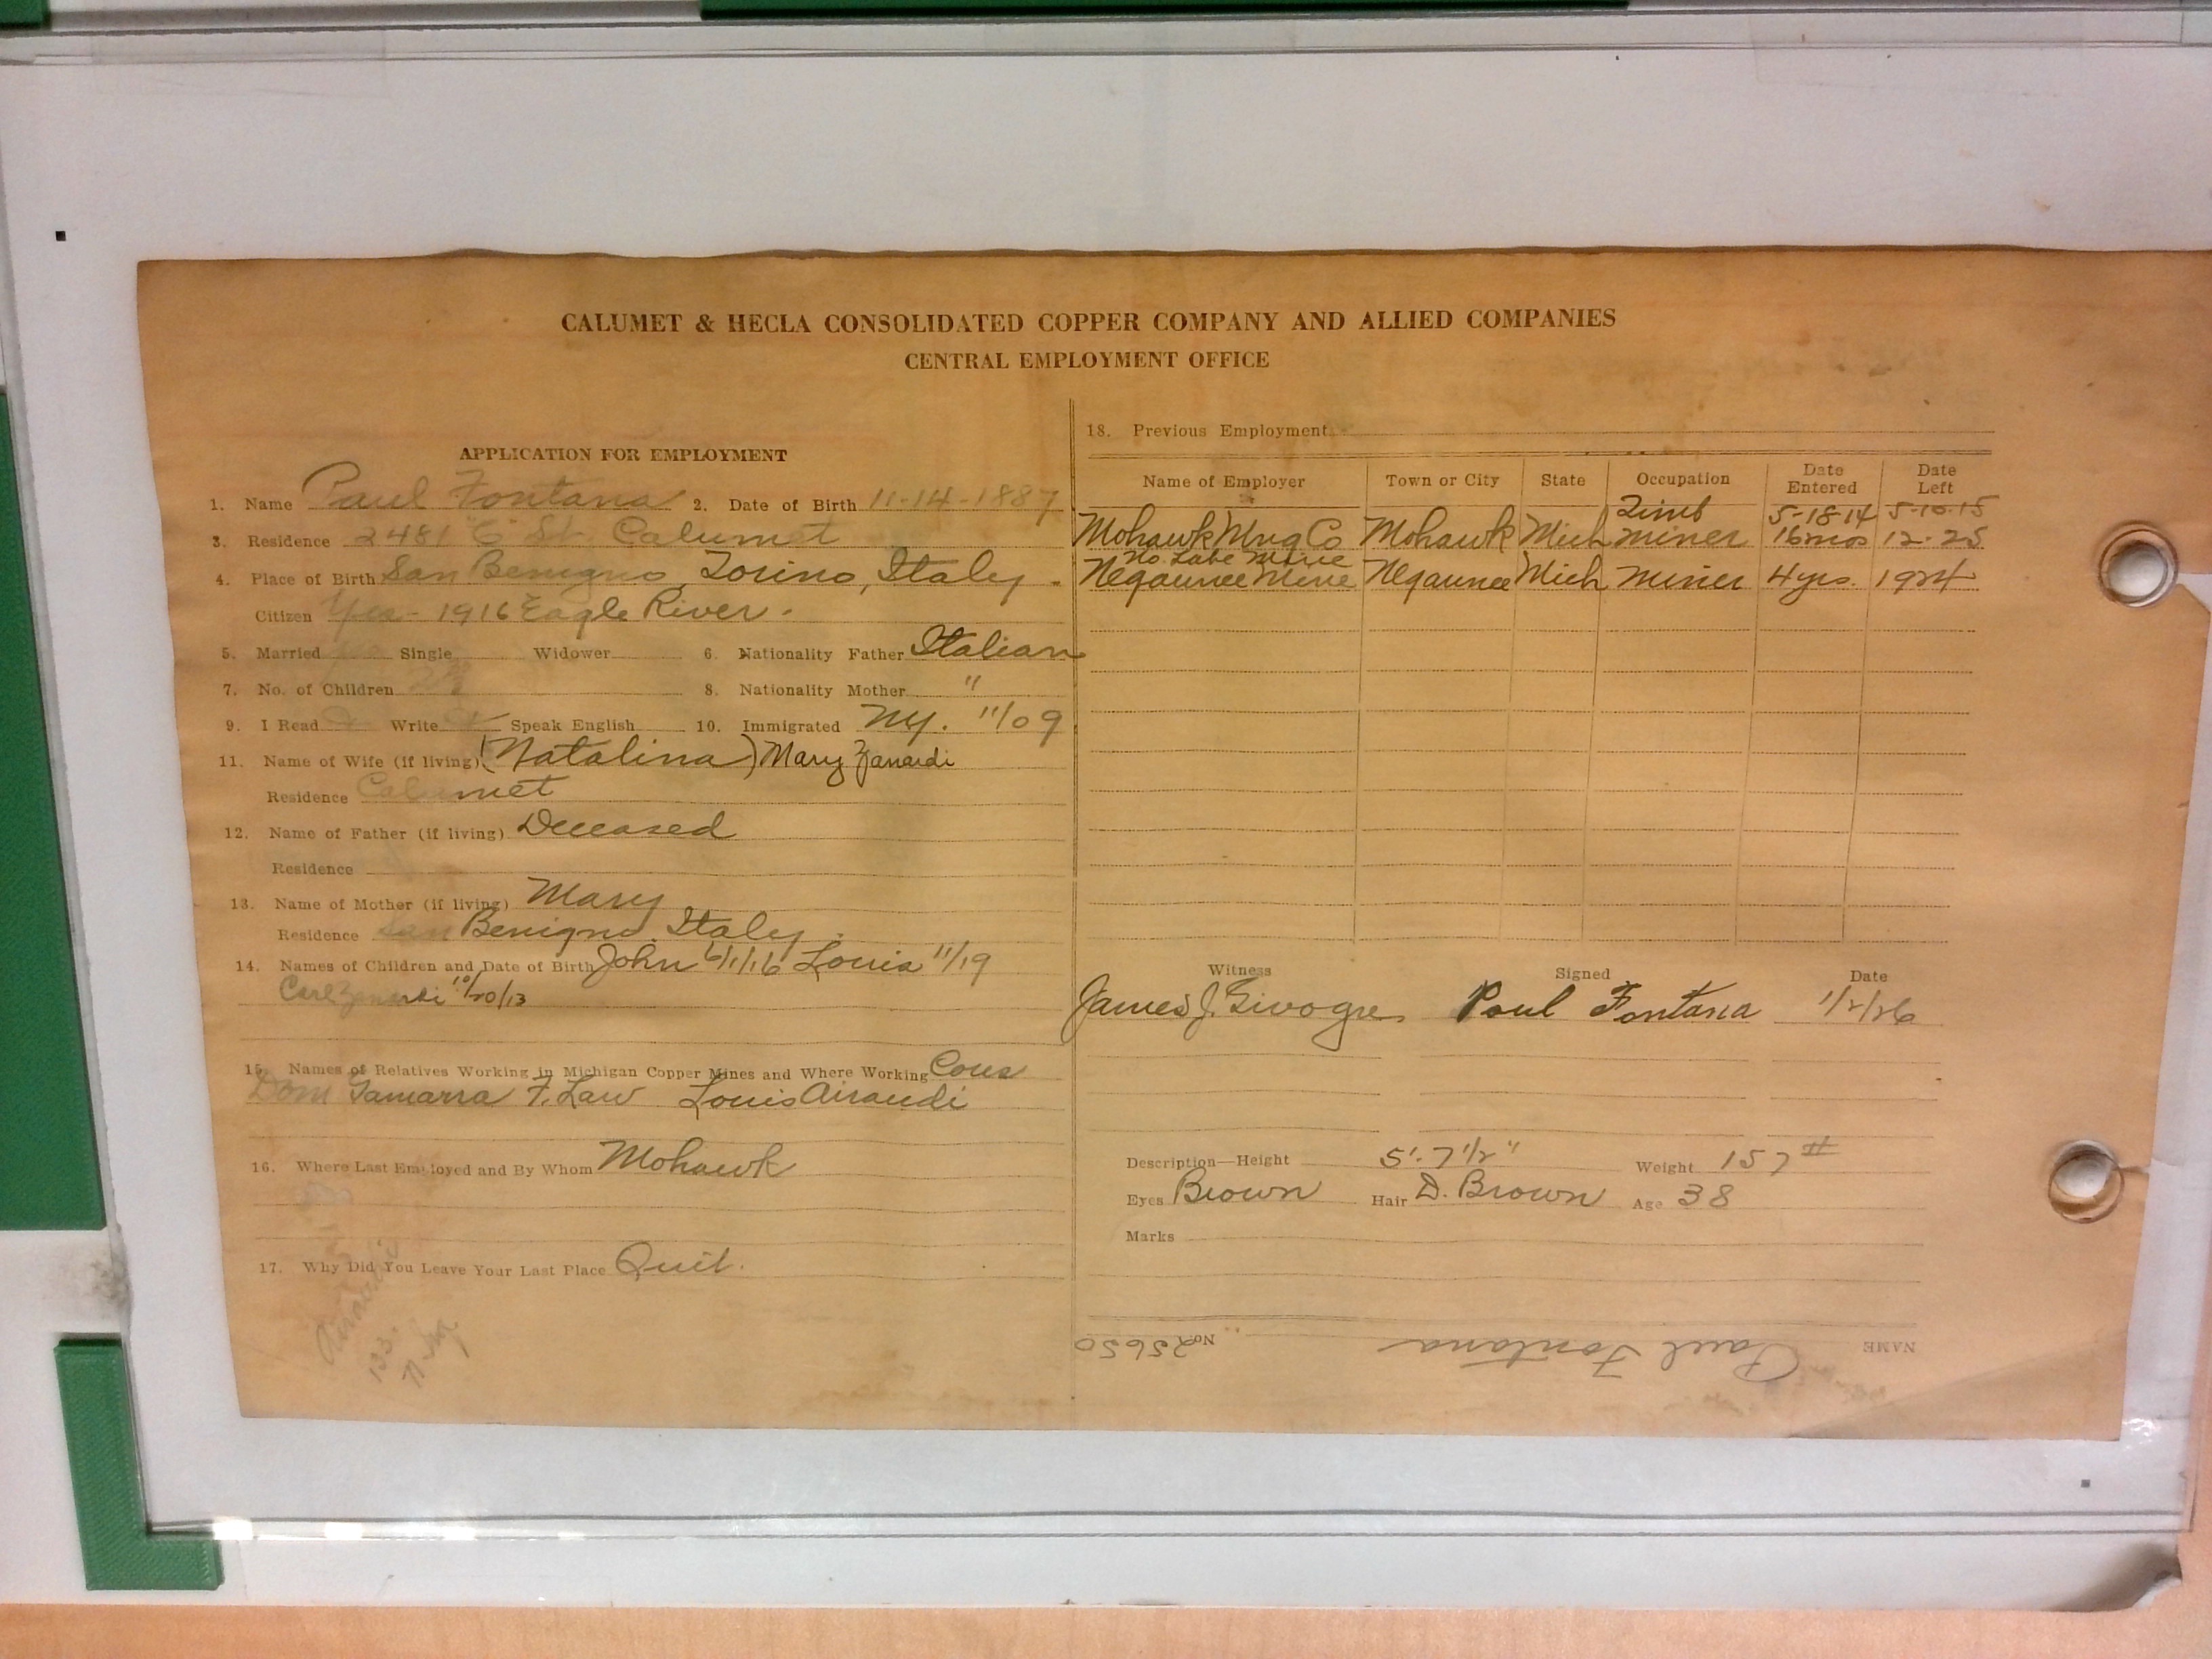 CALUMET & HECLA CONSOLIDATED COPPER COMPANY AND ALLIED COMPANIES
CENTRAL EMPLOYMENT OFFICE
APPLICATION FOR EMPLOYMENT
1. Name Paul Fontana 2. Date of Birth 11-14-1887
3. Residence 2481 "C" St. Calumet
4. Place of Birth San Benigno, Torino, Italy.
Citizen Yes - 1916 Eagle River.
5. Married Single Widower 6. Nationality Father Italian
7. No. of Children 8. Nationality Mother "
9. I Read Write Speak English 10. Immigrated NY. 11/09
11. Name of Wife (if living) (Natalina) Mary Zanardi
Residence Calumet
12. Name of Father (if living) Deceased
Residence
13. Name of Mother (if living) Mary
Residence San Benigno, Italy.
14. Names of Children and Date of Birth John 6/1/16 Louis 11/19
Carl Zanardi 10/20/13
15. Names of Relatives Working in Michigan Copper Mines and Where Working Cous
Dom Gamarra F. Law Louis Airaudi
16. Where Last Employed and By Whom Mohawk
17. Why Did You Leave Your Last Place Quit.
Airaudi
133.
18. Previous Employment
Name of Employer Town or City State Occupation Date Entered Date Left
Timb 5-18-14 5-10-15
Mohawk Mng Co Mohawk Mich miner 16 mos 12-25
No. Lake Mine
Negaunee Mine Negaunee Mich miner 4 yrs. 1924
Witness Signed Date
James J. Givogre Paul Fontana 1/2/26
Description—Height 5'-7 1/2" Weight 157 #
Eyes Brown Hair D. Brown Age 38
Marks
NAME Paul Fontana No. 25650